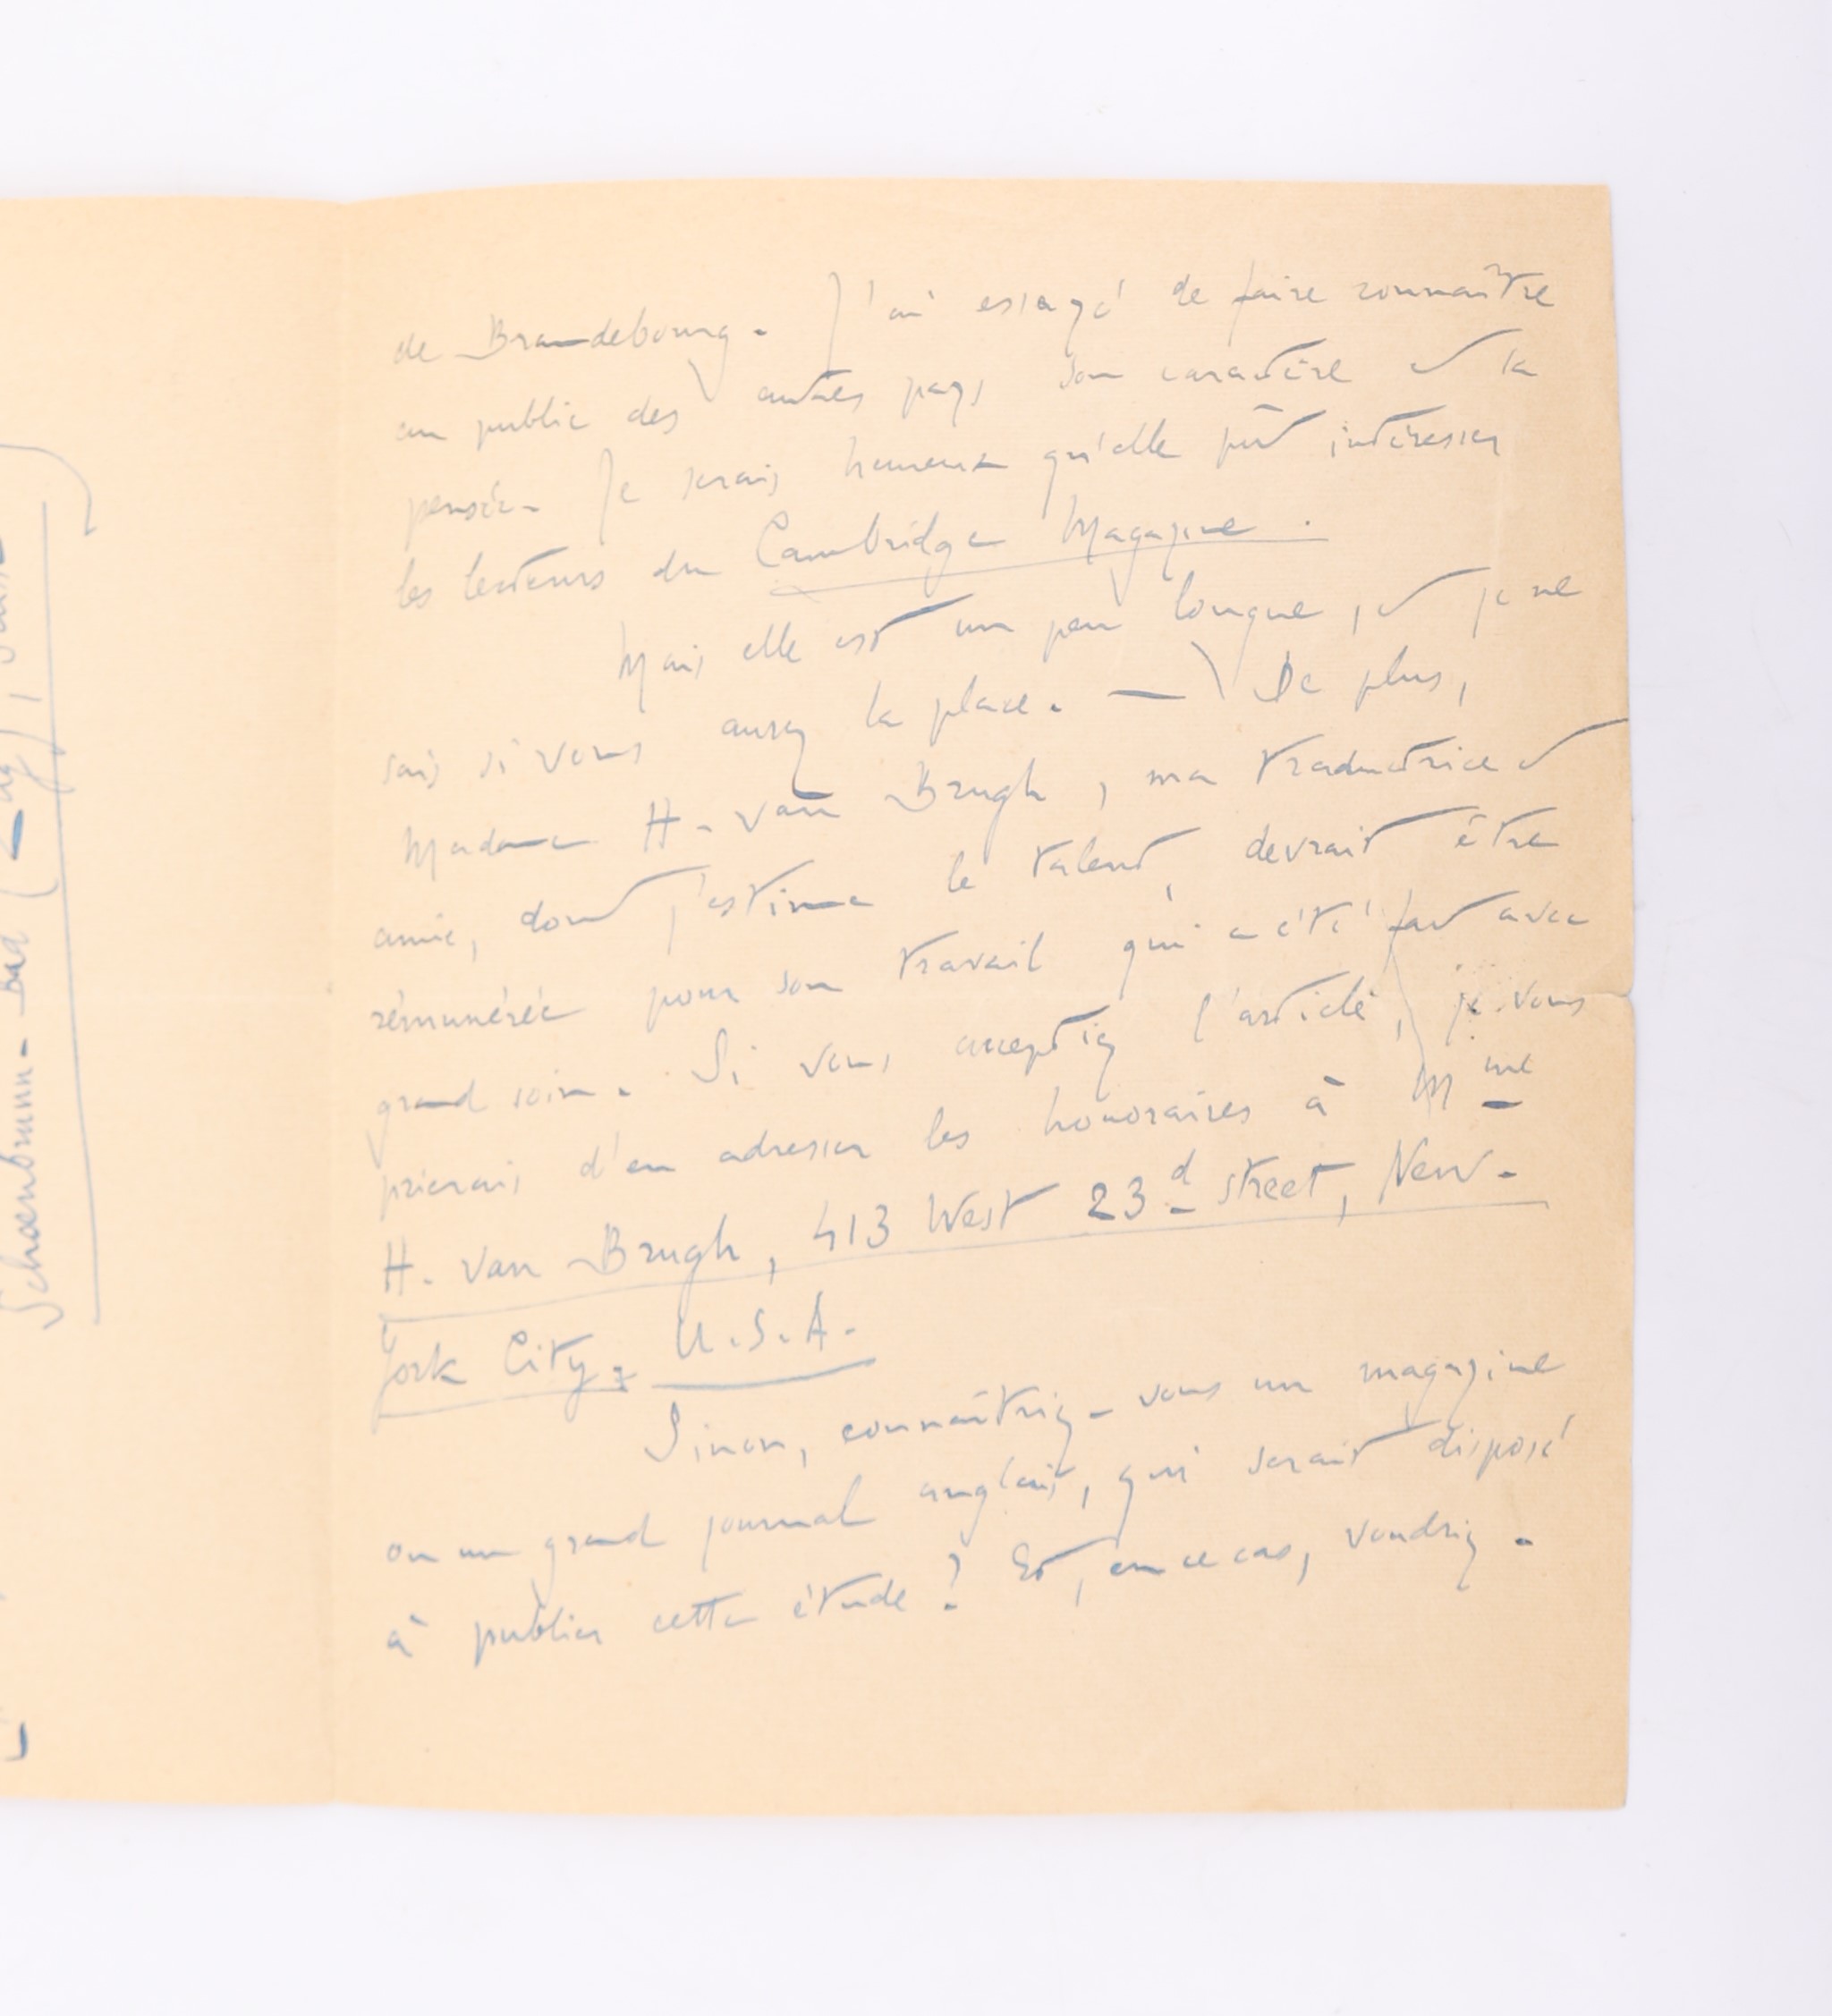 Schoenbrunn-Bad (Zug), Suisse
de Brandebourg. J'ai essayé de faire connaître
au public des autres pays son caractère et sa
pensée. Je serais heureux qu'elle pût intéresser
les lecteurs du Cambridge Magazine.
Mais elle est un peu longue, et je ne
sais si vous aurez la place. — De plus,
Madame H. van Brugh, ma traductrice et
amie, dont j'estime le talent, devrait être
rémunérée pour son travail qui a été fait avec
grand soin. Si vous acceptiez l'article, je vous
prierais d'en adresser les honoraires à Mme
H. van Brugh, 413 West 23d street, New-
York City, U.S.A.
Sinon, connaîtriez-vous un magazine
ou un grand journal anglais, qui serait disposé
à publier cette étude? Et, en ce cas, voudriez-